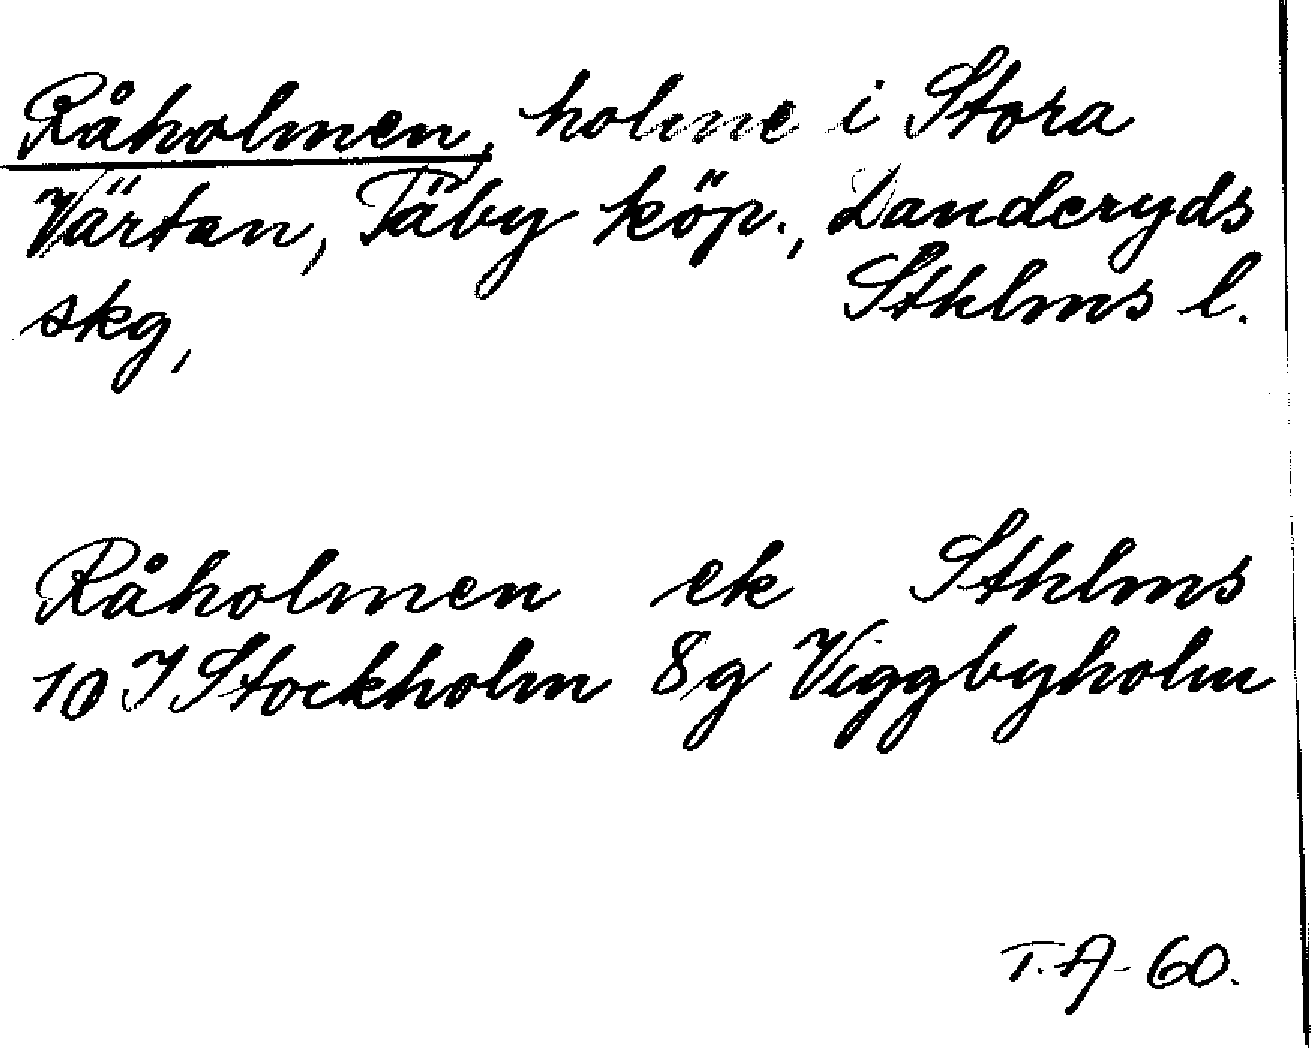 Råholmen, holme i Stora
Värtan, Täby köp., Danderyds
skg, Sthlms l.
Råholmen ek Sthlms
10 I Stockholm 8g Viggbyholm
T.A-60.